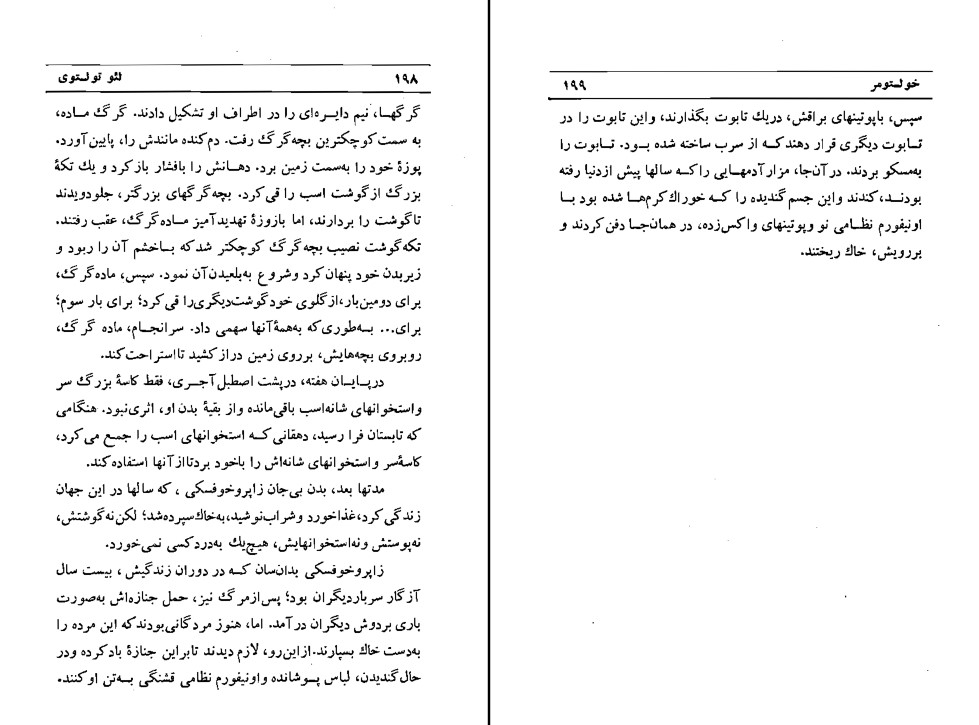 ۱۹۸ لئو تولستوی
گرگهـا، نیم دایـره‌ای را در اطراف او تشکیل دادند. گرگ مـاده،
به سمت کوچکترین بچه‌گرگ رفت. دم‌کنده مانندش را، پایین‌آورد.
پوزهٔ خود را به‌سمت زمین برد. دهـانش را بافشار بازکرد و یك تکهٔ
بزرگ ازگوشت اسب را قی‌کرد. بچه‌گرگهای بزرگتر، جلودویدند
تاگوشت را بردارند، اما بازوزهٔ تهدیدآمیز مـاده‌گرگ، عقب رفتند.
تکه‌گوشت نصیب بچه‌گرگ کوچکتر شدکه بـاخشم آن را ربود و
زیربدن خود پنهان‌کرد وشروع به‌بلعیدن‌آن نمود. سپس، ماده‌گرگ،
برای دومین‌بار، ازگلوی خودگوشت‌دیگری‌را قی‌کرد؛ برای بار سوم؛
برای... بـه‌طوری‌که به‌همهٔ‌آنها سهمی داد. سرانجـام، ماده گرگ،
روبروی بچه‌هایش، برروی زمین درازکشید تااستراحت‌کند.
درپـایـان هفته، درپشت اصطبل‌آجـری، فقط کاسهٔ بزرگ سر
واستخوانهای شانه‌اسب باقی‌مانده واز بقیهٔ بدن او، اثری‌نبود. هنگامی
که تابستان فرا رسید، دهقانی‌کـه استخوانهای اسب را جمع می‌کرد،
کاسهٔ‌سر واستخوانهای شانه‌اش را باخود بردتااز آنها استفاده‌کند.
مدتها بعد، بدن بی‌جان زاپروخوفسکی، که سالها در این جهان
زندگی‌کرد، غذاخورد وشراب‌نوشید، به‌خاك‌سپرده‌شد؛ لکن‌نه‌گوشتش،
نه‌پوستش ونه‌استخوانهایش، هیچ‌یك به‌دردکسی نمی‌خورد.
زاپروخوفسکی بدان‌سان کـه در دوران زندگیش، بیست سال
آزگار سربار‌دیگران بود؛ پس‌ازمرگ نیز، حمل جنازه‌اش به‌صورت
باری بردوش دیگران درآمد. اما، هنوز مردگانی‌بودندکه این مرده را
به‌دست خاك بسپارند. ازاین‌رو، لازم دیدند تابراین جنازهٔ بادکرده ودر
حال‌گندیدن، لباس پـوشانده واونیفورم نظامی قشنگی بـه‌تن اوکنند.
خولستومر ۱۹۹
سپس، باپوتینهای براقش، دریك تابوت بگذارند، واین تابوت را در
تـابوت دیگری قرار دهندکـه از سرب ساخته شده بـود. تـابوت را
به‌مسکو بردند. در آن‌جا، مزار آدمهـایی راکـه سالها پیش ازدنیا رفته
بودنـد،کندند واین جسم‌گندیده را کـه خوراك‌کرم‌هـا شده بود بـا
اونیفورم نظـامی نو وپوتینهای واکس‌زده، در همان‌جـا دفن‌کردند و
برروبش، خاك ریختند.